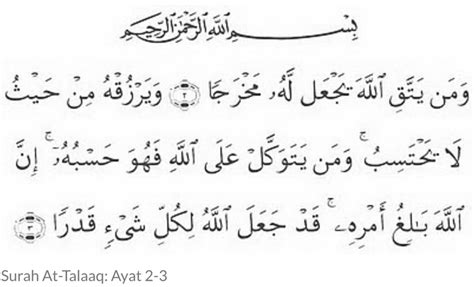 بِسْمِ ٱللَّهِ ٱلرَّحْمَٰنِ ٱلرَّحِيمِ
وَمَن يَتَّقِ ٱللَّهَ يَجْعَل لَّهُۥ مَخْرَجًا ﴿٢﴾ وَيَرْزُقْهُ مِنْ حَيْثُ
لَا يَحْتَسِبُ ۚ وَمَن يَتَوَكَّلْ عَلَى ٱللَّهِ فَهُوَ حَسْبُهُۥٓ ۚ إِنَّ
ٱللَّهَ بَٰلِغُ أَمْرِهِۦ ۚ قَدْ جَعَلَ ٱللَّهُ لِكُلِّ شَىْءٍ قَدْرًا ﴿٣﴾
Surah At-Talaaq: Ayat 2-3